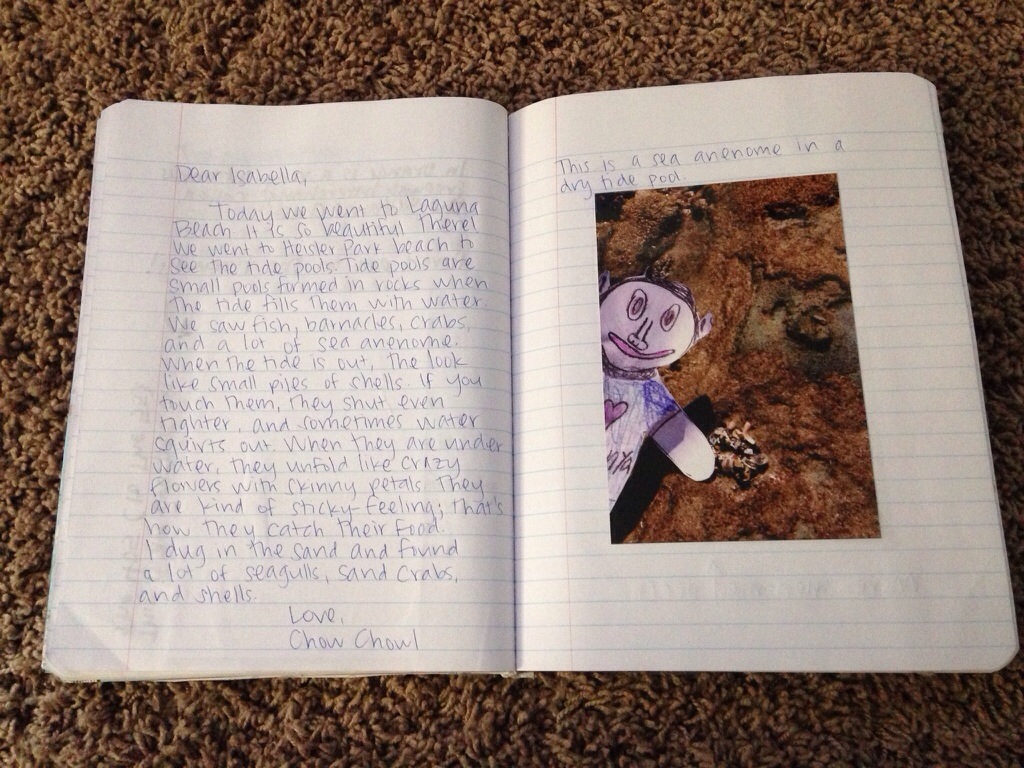 Dear Isabella,
Today we went to Laguna
Beach it is so beautiful there!
We went to Heisler Park beach to
see the tide pools. Tide pools are
small pools formed in rocks when
the tide fills them with water.
We saw fish, barnacles, crabs,
and a lot of sea anenome.
When the tide is out, the look
like small piles of shells. If you
touch them, they shut even
tighter, and sometimes water
squirts out. When they are under
water, they unfold like crazy
flowers with skinny petals. They
are kind of sticky-feeling; that's
how they catch their food.
I dug in the sand and found
a lot of seagulls, sand crabs,
and shells.
Love,
Chow Chow!
This is a sea anenome in a
dry tide pool.